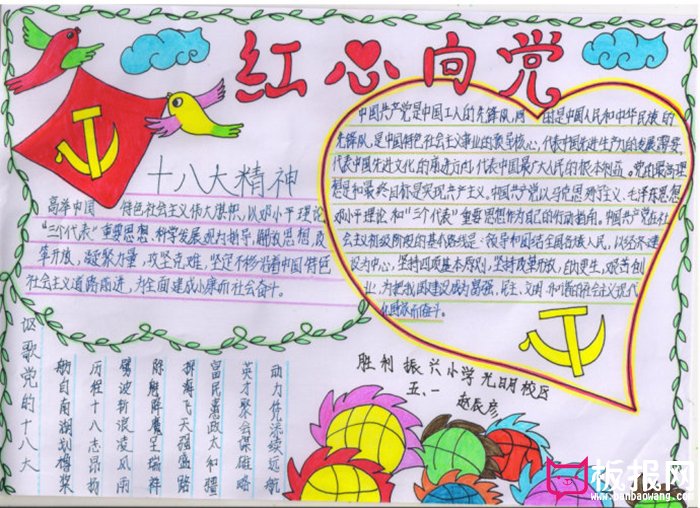 红心向党
十八大精神
高举中国 特色社会主义伟大旗帜,以邓小平理论
“三个代表”重要思想,科学发展观为指导,解放思想,改
革开放,凝聚力量,攻坚克难,坚定不移沿着中国特色
社会主义道路前进,为全面建成小康而社会奋斗。
中国共产党是中国工人的先锋队,同 国是中国人民和中华民族的
先锋队,是中国特色社会主义事业的领导核心,代表中国先进生产力的发展要求,
代表中国先进文化的前进方向,代表中国最广大人民的根本利益。党的最高理
想是和最终目标是实现共产主义。中国共产党以马克思列宁主义、毛泽东思想
邓小平理论和“三个代表”重要思想作为自己的行动指南。中国共产党在社
会主义初级阶段的基本路线是:领导和团结全国各族人民,以经济建
设为中心,坚持四项基本原则,坚持改革开放,自力更生,艰苦创
业,为把我国建设成为富强、民主、文明 的社会主义现代
化国家而奋斗。
讴歌党的十八大
船自南湖划橹桨
历程十八志昂扬
劈波斩浪凌风雨
除魅降魔呈瑞祥
探海飞天强盛路
富民惠政太和疆
英才聚会谋雄略
动力传递续远航
胜利振兴小学光明校区
五、一 赵辰彦
板报网
www.banbaowang.com